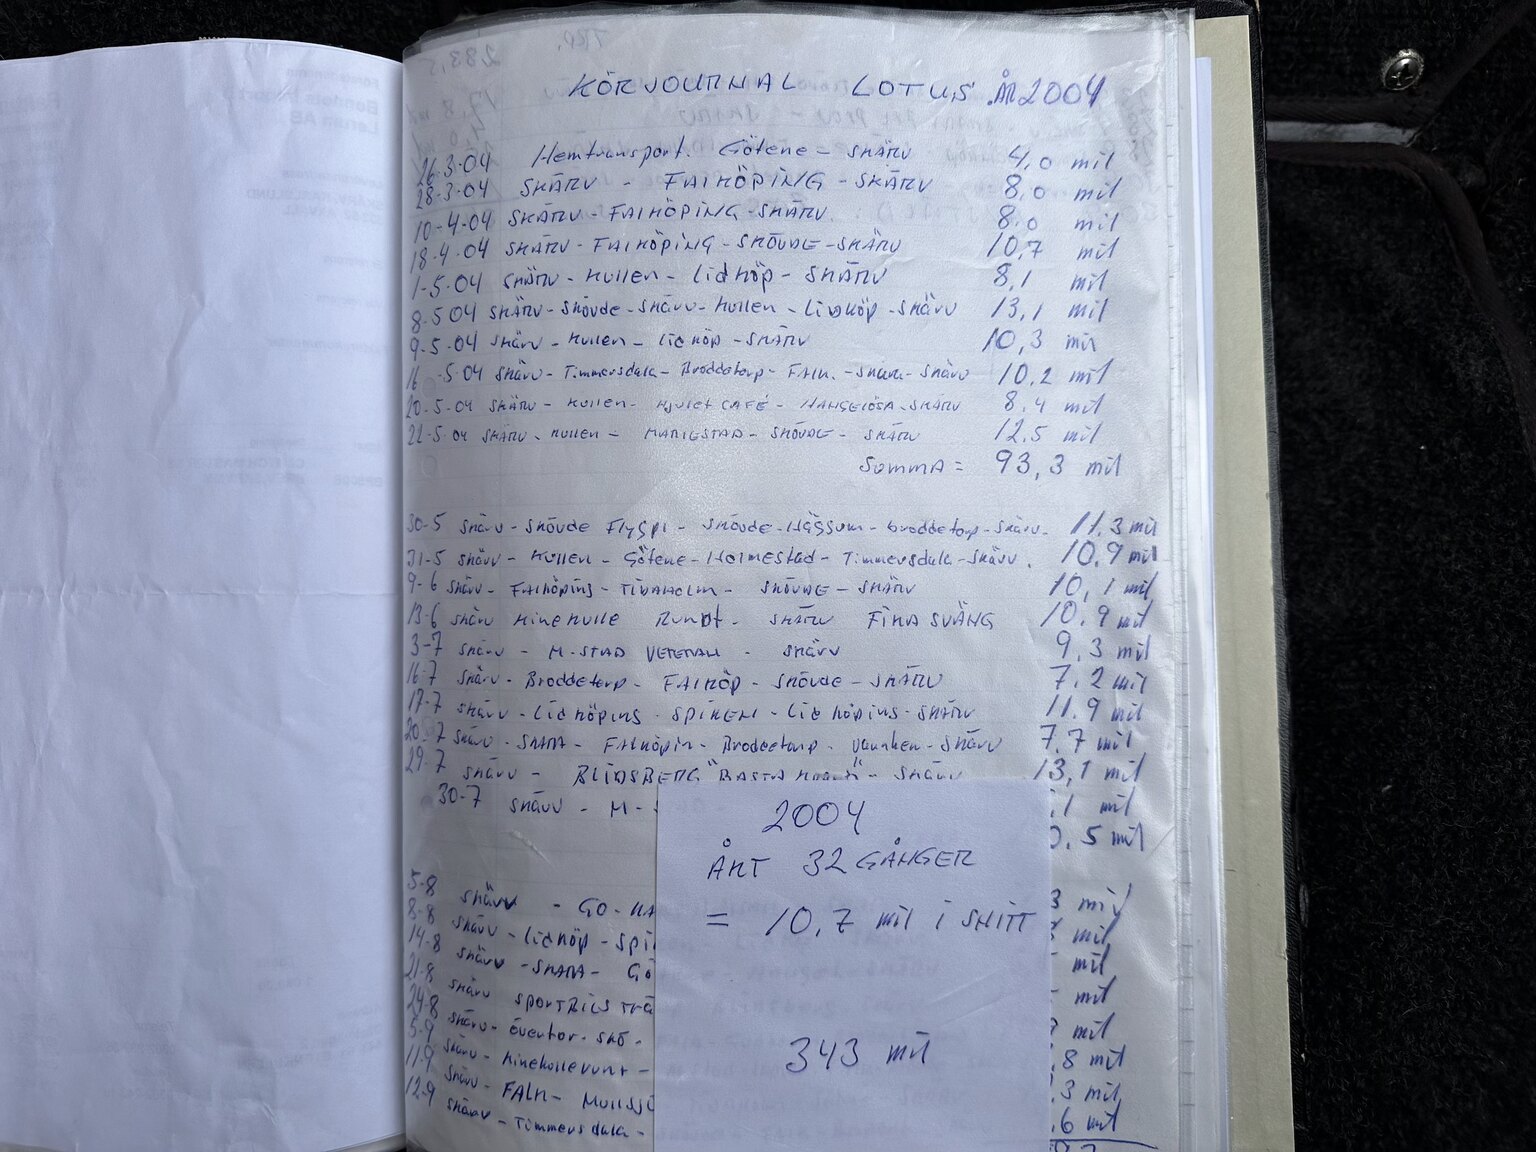 KÖRJOURNAL LOTUS ÅR 2004
26-3-04 Hemtransport. Götene - SKÄRV 4,0 mil
28-3-04 SKÄRV - FALKÖPING - SKÄRV 8,0 mil
10-4-04 SKÄRV - FALKÖPING - SKÄRV 8,0 mil
18-4-04 SKÄRV - FALKÖPING - SKÖVDE - SKÄRV 10,7 mil
1-5-04 SKÄRV - Kullen - Lidköp - SKÄRV 8,1 mil
8-5 04 SKÄRV - Skövde - Skärv - Kullen - Lidköp - Skärv 13,1 mil
9-5-04 Skärv - Kullen - Lidköp - SKÄRV 10,3 mil
16-5-04 Skärv - Timmersdala - Broddetorp - FALK. - Skara - Skärv 10,2 mil
20-5-04 SKÄRV - Kullen - Hjulet CAFÉ - HANGELÖSA - SKÄRV 8,4 mil
22-5-04 SKÄRV - Kullen - MARIESTAD - SKÖVDE - SKÄRV 12,5 mil
SUMMA = 93,3 mil
30-5 Skärv - Skövde Flygpl - Skövde - Häggum - Broddetorp - Skärv. 11.3 mil
31-5 Skärv - Kullen - Götene - Holmestad - Timmersdala - Skärv. 10.9 mil
9-6 Skärv - Falköping - TIDAHOLM - SKÖVDE - SKÄRV 10,1 mil
13-6 Skärv Kinekulle Runt - SKÄRV FINA SVÄNG 10.9 mil
3-7 Skärv - M-STAD VETERAN - SKÄRV 9.3 mil
16-7 Skärv - Broddetorp - FALKÖP - Skövde - SKÄRV 7.2 mil
17-7 Skärv - Lidköping - SPIKEN - Lidköping - SKÄRV 11.9 mil
20-7 Skärv - SKARA - Falköpin - Broddetorp - Varnhem - Skärv 7.7 mil
29-7 Skärv - BLIDSBERG "BASTA - Skärv 13,1 mil
30-7 Skärv - M- .1 mil
0.5 mil
5-8 Skärv - GO-KA 3 mil
8-8 Skärv - Lidköp - Spi mil
14-8 Skärv - SKARA - Gö mil
21-8 Skärv SPORTBILS TRÄ mil
24-8 Skärv - Överlor - Skö - mil
5-9 Skärv - Kinekulle runt - .8 mil
11-9 Skärv - FALK - Mullsjö .3 mil
12-9 Skärv - Timmersdala - .6 mil
2004
ÅKT 32 GÅNGER
= 10,7 mil i SNITT
343 mil